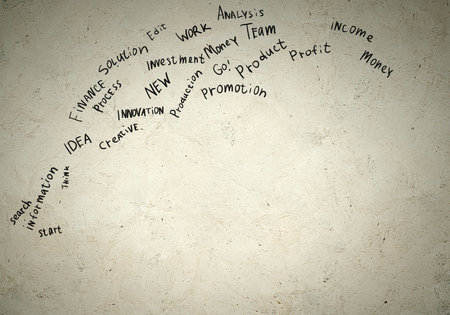 Analysis
Edit
WORK
Team
INCOME
SOLUTION
Investment
Money
Product
Profit
Money
FINANCE
PROCESS
NEW
Go!
Production
Promotion
INNOVATION
IDEA
Creative.
Think
search
information
start